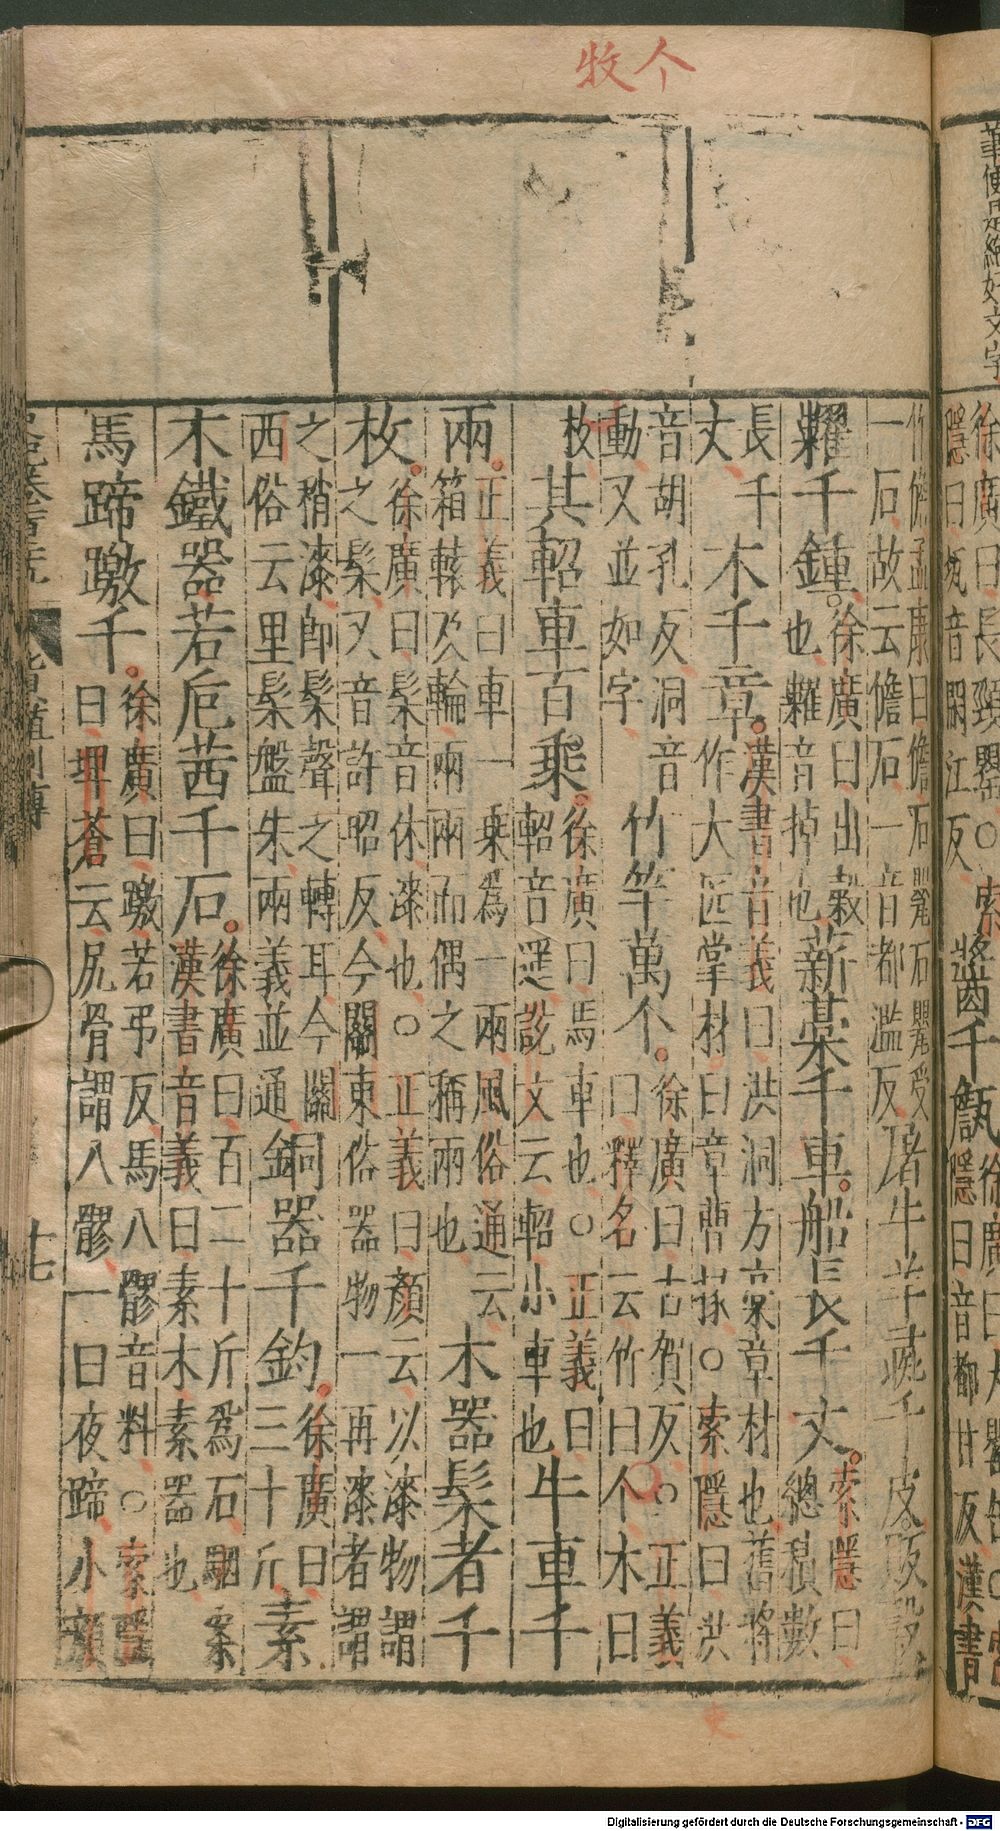 个
牧
徐廣曰長頸罌○索
隱曰瓨音閑江反
醬千甔
徐廣曰大罌缶○索
隱曰音都甘反漢書
竹儋孟康曰儋石甖石甖受
一石故云儋石一音都濫反
屠牛羊彘千皮販穀
糶千鍾
徐廣曰出穀
也糶音掉也
薪槀千車船長千丈
索隱曰
總積數
長千
丈
木千章
漢書音義曰洪洞方槀章材也舊將
作大匠掌材曰章曹掾○索隱曰洪
音胡孔反洞音
動又並如字
竹竿萬个
徐廣曰古賀反○正義
曰釋名云竹曰个木曰
枚
其軺車百乘
徐廣曰馬車也○正義曰
軺音遥說文云軺小車也
牛車千
兩
正義曰車一乘為一兩風俗通云
箱轅及輪兩兩而偶之稱兩也
木器髤者千
枚
徐廣曰髤音休漆也○正義曰顏云以漆物謂
之髤又音許昭反今關東俗器物一再漆者謂
之稍漆即髤聲之轉耳今關
西俗云里髤盤朱兩義並通
銅器千鈞
徐廣曰
三十斤
素
木鐵器若巵茜千石
徐廣曰百二十斤為石駰案
漢書音義曰素木素器也
馬蹄躈千
徐廣曰躈若弔反馬八髎音料○索隱
曰埤蒼云尻骨謂八髎一曰夜蹄小顏
貨殖列傳
十七
Digitalisierung gefördert durch die Deutsche Forschungsgemeinschaft - DFG